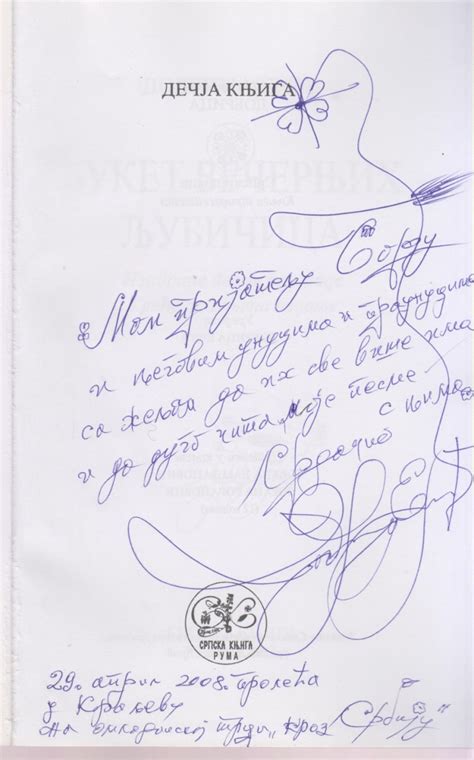 ДЕЧЈА КЊИГА
Мом пријатељу Борђу
и његовим унуцима и праунуцима
са жељом да их све више има
и да дуго чита моје песме
с њима
Срдачно
СРПСКА КЊИГА
РУМА
29. април 2008. пролећа
у Краљеву
На омладинској трци „кроз Србију"